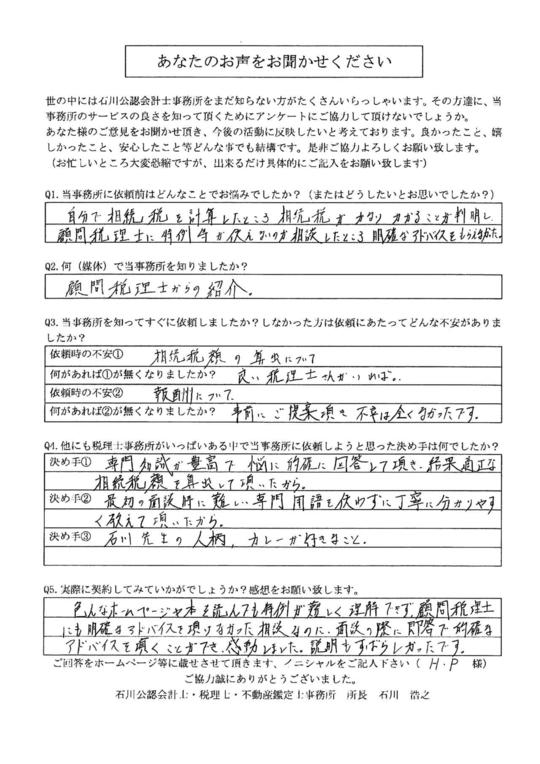 あなたのお声をお聞かせください
世の中には石川公認会計士事務所をまだ知らない方がたくさんいらっしゃいます。その方達に、当
事務所のサービスの良さを知って頂くためにアンケートにご協力して頂けないでしょうか。
あなた様のご意見をお聞かせ頂き、今後の活動に反映したいと考えております。良かったこと、嬉
しかったこと、安心したこと等どんな事でも結構です。是非ご協力よろしくお願い致します。
（お忙しいところ大変恐縮ですが、出来るだけ具体的にご記入をお願い致します）
Q1.当事務所に依頼前はどんなことでお悩みでしたか？（またはどうしたいとお思いでしたか？）
自分で相続税を計算したところ相続税がかなりかかることが判明し、
顧問税理士に特例等が使えないのか相談したところ明確なアドバイスをもらえなかった。
Q2.何（媒体）で当事務所を知りましたか？
顧問税理士からの紹介。
Q3.当事務所を知ってすぐに依頼しましたか？しなかった方は依頼にあたってどんな不安がありま
したか？
依頼時の不安① 相続税額の算出について
何があれば①が無くなりましたか？ 良い税理士さんがいれば。
依頼時の不安② 報酬について
何があれば②が無くなりましたか？ 事前にご提案頂き不安は全くなかったです。
Q4.他にも税理士事務所がいっぱいある中で当事務所に依頼しようと思った決め手は何でしたか？
決め手① 専門知識が豊富で悩に的確に回答して頂き、結果適正な
相続税額を算出して頂いたから。
決め手② 最初の面談時に難しい専門用語を使わずに丁寧に分かりやす
く教えて頂いたから。
決め手③ 石川先生の人柄、カレーが好きなこと。
Q5.実際に契約してみていかがでしょうか？感想をお願い致します。
色んなホームページや本を読んでも特例が難しく理解できず、顧問税理士
にも明確なアドバイスを頂けなかった相談なのに、面談の際に即答で的確な
アドバイスを頂くことができ、感動しました。説明もすばらしかったです。
ご回答をホームページ等に載せさせて頂きます、イニシャルをご記入下さい（ H・P 様）
ご協力誠にありがとうございました。
石川公認会計士・税理士・不動産鑑定士事務所 所長 石川 浩之